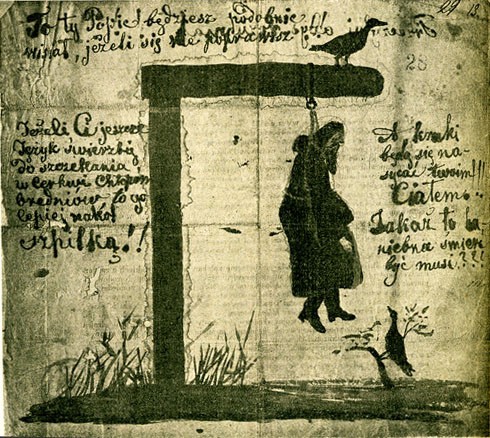 29 13.
To ty Popie! będziesz podobnie
wisiał, jeżeli się nie poprawisz
28
Jeżeli Ci jeszcze
Język swierzbą
Do szczekania
w Cerkwi Chłopom
bredniów, to go
lepiej nakol
szpilką!!
A kruki
będą się na-
sycać twoim!!!
Ciałem.
Jakaż to ha-
niebna śmierć
być musi???